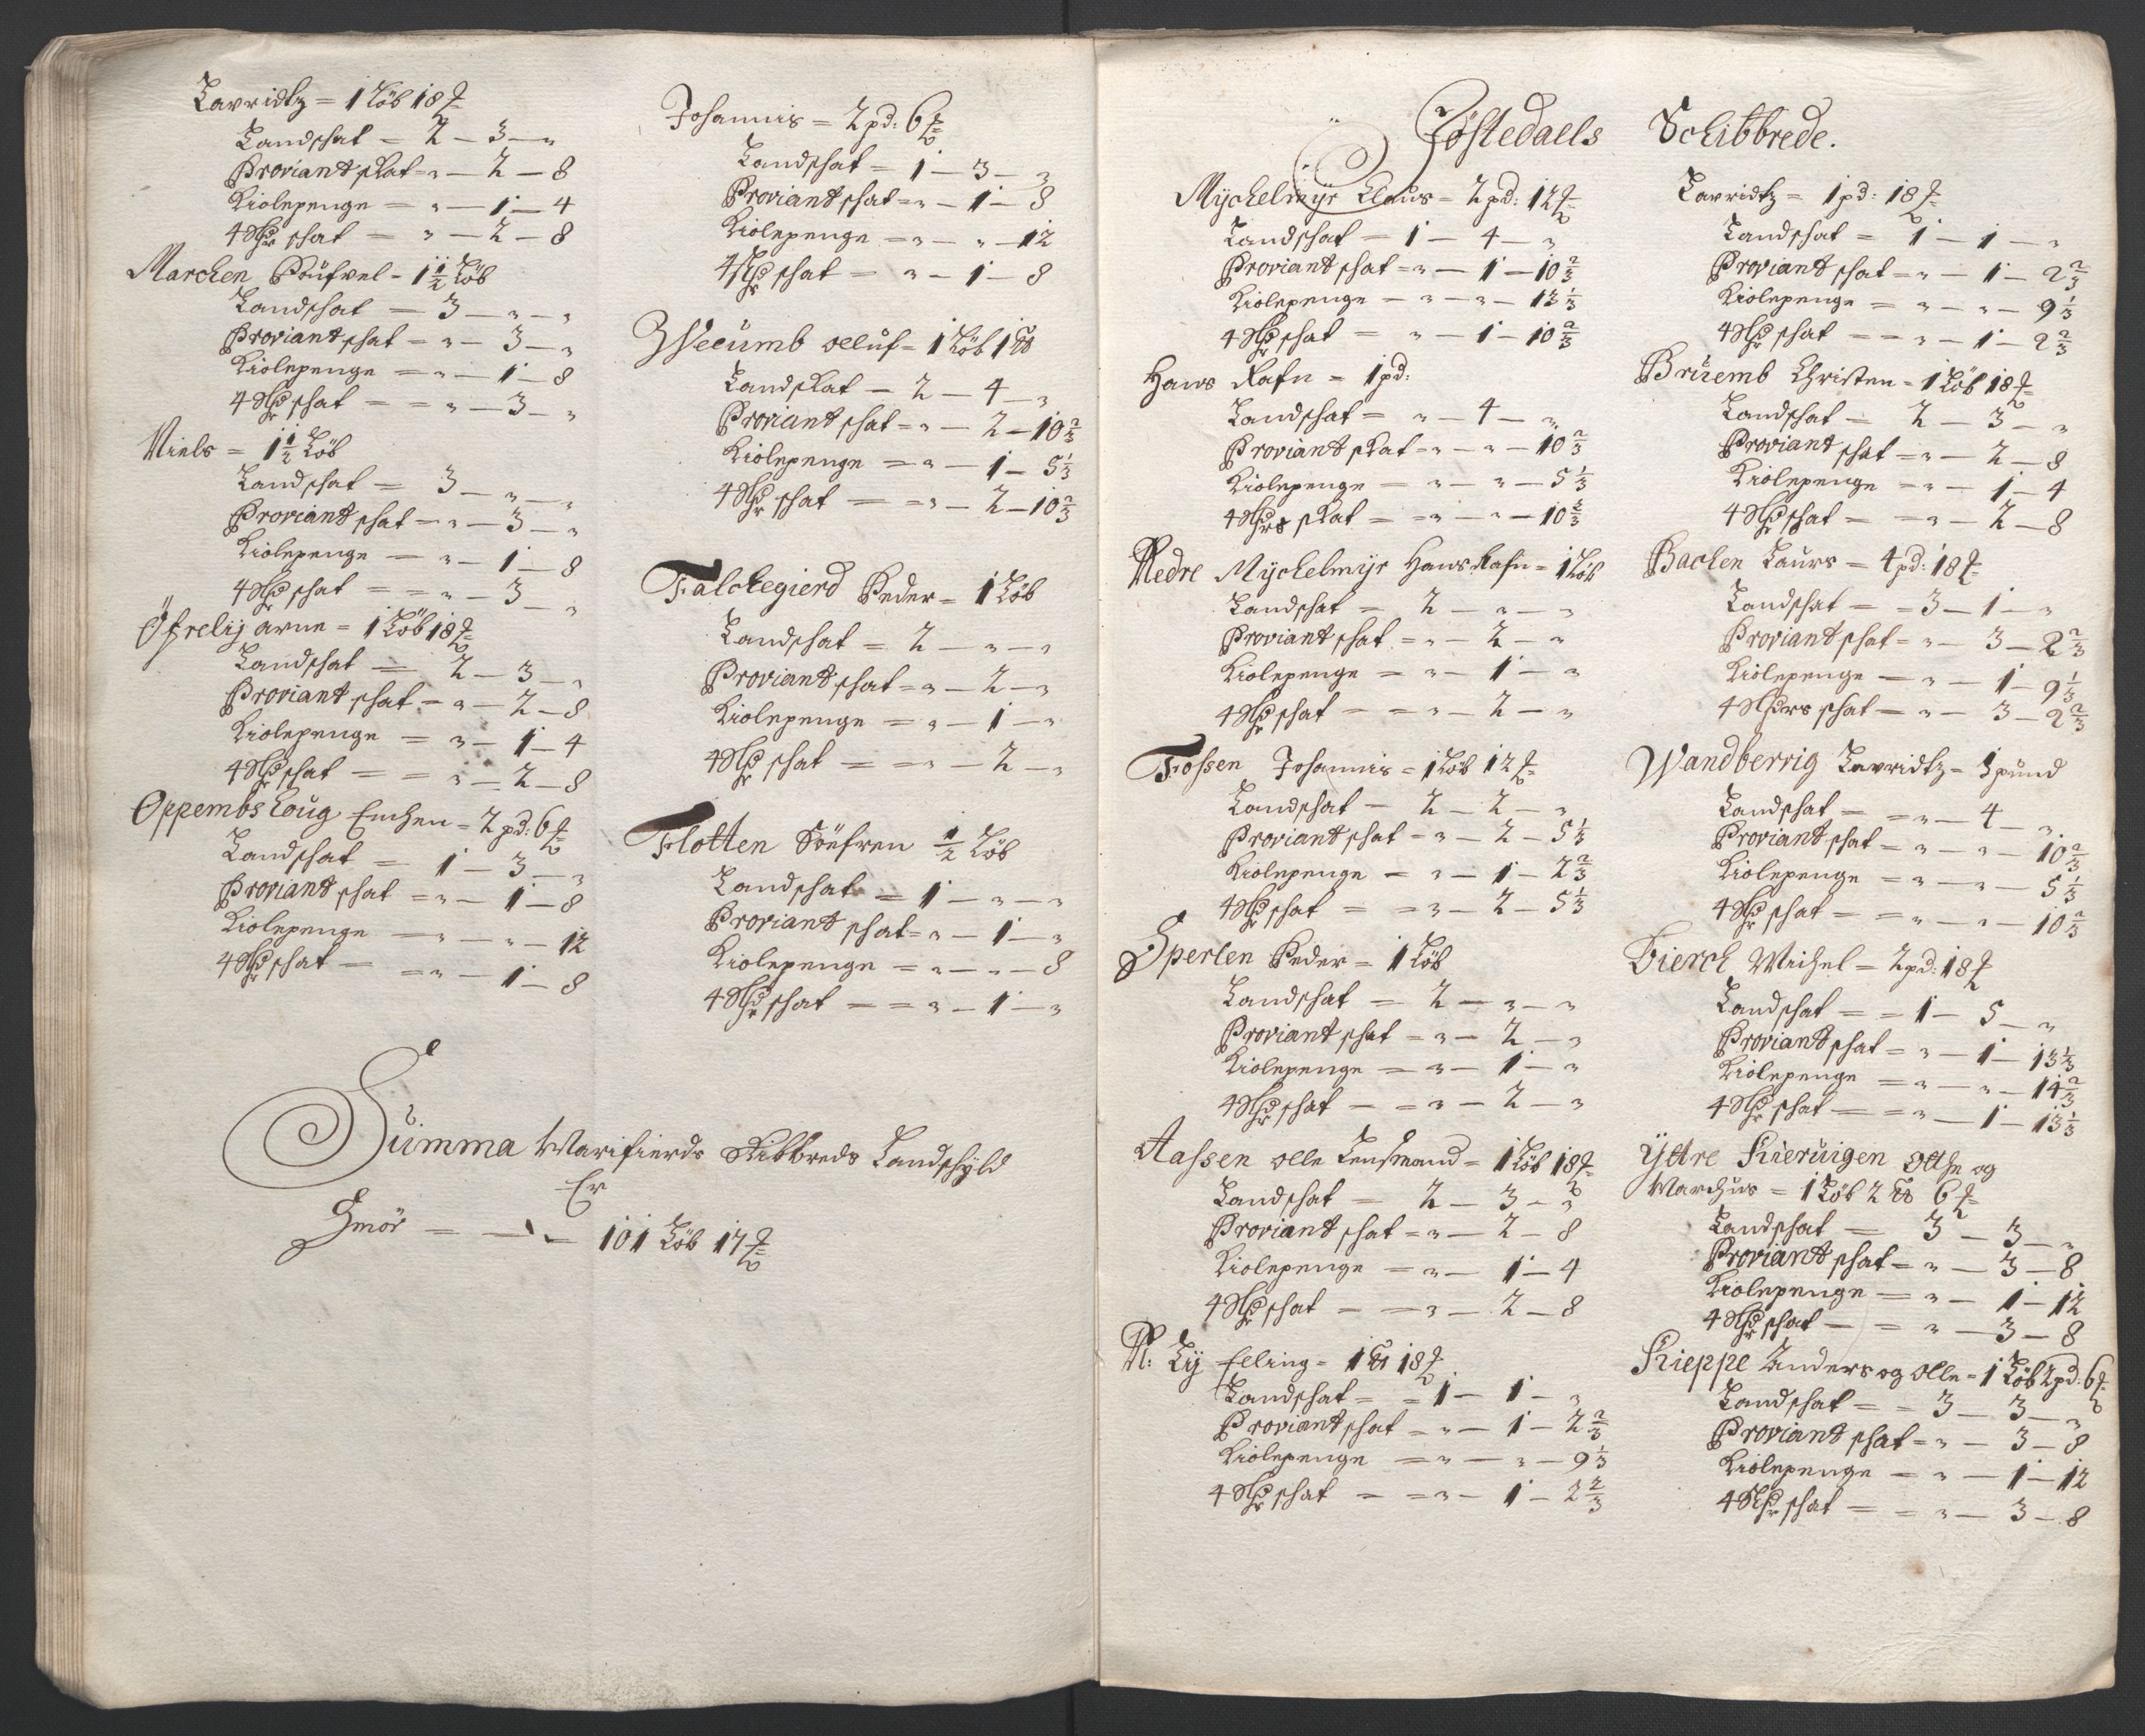 Lavridtz = 1 Løb 18 ℔
Landschat = 2 – 3 – „
Proviant skat = „ – 2 – 8
Kiolepenge = „ – 1 – 4
4 Rdr schat = „ – 2 – 8
Marchen Poüfvel = 1 1/2 Løb
Landschat = 3 – „ – „
Proviant schat = „ – 3 – „
Kiolepenge = „ – 1 – 8
4 Rdr schat = „ – 3 – „
Niels = 1 1/2 Løb
Landschat = 3 – „ – „
Proviant schat = „ – 3 – „
Kiolepenge = „ – 1 – 8
4 Rdr schat = „ – 3 – „
Öfrelij arne = 1 Løb 18 ℔
Landschat = 2 – 3 – „
Proviant schat = „ – 2 – 8
Kiolepenge = „ – 1 – 4
4 Rdr schat = „ – 2 – 8
Oppembs Loug Enchen = 2 pd: 6 ℔
Landschat = 1 – 3 – „
Proviant schat = „ – 1 – 8
Kiolepenge = „ – „ – 12
4 Rdr schat = „ – 1 – 8
Johannis = 2 pd: 6 ℔
Landschat = 1 – 3 – „
Proviant schat = „ – 1 – 8
Kiolepenge = „ – „ – 12
4 Rdr schat = „ – 1 – 8
Weeumb olluf = 1 Løb 1 pd
Landskat = 2 – 4 – „
Proviant schat = „ – 2 – 10 2/3
Kiolepenge = „ – 1 – 5 1/3
4 Rdr schat = „ – 2 – 10 2/3
Falchegierd Peder = 1 Løb
Landschat = 2 – „ – „
Proviant schat = „ – 2 – „
Kiolepenge = „ – 1 – „
4 Rdr schat = „ – 2 – „
Flotten Söefren 1/2 Løb
Landschat = 1 – „ – „
Proviant schat = „ – 1 – „
Kiolepenge = „ – „ – 8
4 Rdr schat = „ – 1 – „
Sümma Marifierds Skibbreds Landschÿld
Er
Smör = – – 101 Løb 17 ℔
Jöstedaels Schibbrede.
Myckelmÿr Claus = 2 pd: 12 ℔
Landschat = 1 – 4 – „
Proviant schat = „ – 1 – 10 2/3
Kiolepenge – „ – „ – 13 1/3
4 Rdr schat = „ – 1 – 10 2/3
Hans Rafn = 1 pd:
Landschat = „ – 4 – „
Proviant skat = „ – „ – 10 2/3
Kiolepenge = „ – „ – 5 1/3
4 Rdrs skat = „ – „ – 10 2/3
Nedre Myckelmÿr Hans Rafn = 1 Løb
Landschat = 2 – „ – „
Proviant schat = „ – 2 – „
Kiolepenge = „ – 1 – „
4 Rdr schat = „ – 2 – „
Fossen Johannis = 1 Løb 12 ℔
Landschat – 2 – 2 – „
Proviant schat = „ – 2 – 5 1/3
Kiolepenge = „ – 1 – 2 2/3
4 Rdr schat = „ – 2 – 5 1/3
Sperlen Peder = 1 Løb
Landschat = 2 – „ – „
Proviant schat = „ – 2 – „
Kiolepenge = „ – 1 – „
4 Rdr schat = „ – 2 – „
Aassen olle Lensmand = 1 Løb 18 ℔
Landschat = 2 – 3 – „
Proviant schat = „ – 2 – 8
Kiolepenge = „ – 1 – 4
4 Rdr schat = „ – 2 – 8
N: Lij Elling = 1 pd 18 ℔
Landschat = 1 – 1 – „
Proviant schat = „ – 1 – 2 2/3
Kiolepenge = „ – „ – 9 1/3
4 Rdr schat = „ – 1 – 2 2/3
Lavridtz = 1 pd: 18 ℔
Landschat = 1 – 1 – „
Proviant schat = „ – 1 – 2 2/3
Kiolepenge = „ – „ – 9 1/3
4 Rdr schat = „ – 1 – 2 2/3
Bruemb Christen = 1 Løb 18 ℔
Landschat = 2 – 3 – „
Proviant schat = „ – 2 – 8
Kiolepenge = „ – 1 – 4
4 Rdr schat = „ – 2 – 8
Bachen Laurs = 4 pd: 18 ℔
Landschat = 3 – 1 – „
Proviant schat = „ – 3 – 2 2/3
Kiolepenge – „ – 1 – 9 1/3
4 Rdrs schat = „ – 3 – 2 2/3
Wandberrig Lavridtz = 1 pund
Landschat = „ – 4 – „
Proviant schat = „ – „ – 10 2/3
Kiolepenge = „ – „ – 5 1/3
4 Rdr schat = „ – „ – 10 2/3
Bierch Michel = 2 pd: 18 ℔
Landschat = 1 – 5 – „
Proviant schat = „ – 1 – 13 1/3
Kiolepenge = „ – „ – 14 2/3
4 Rdr schat = „ – 1 – 13 1/3
Ÿttre Kieruigen Otthe og
Marchus = 1 Løb 2 pd 6 ℔
Landschat = 3 – 3 – „
Proviant schat = „ – 3 – 8
Kiolepenge = „ – 1 – 12
4 Rdr schat = „ – 3 – 8
Kieppe Anders og Olle = 1 Løb 2 pd: 6 ℔
Landschat = 3 – 3 – „
Proviant schat = „ – 3 – 8
Kiolepenge = „ – 1 – 12
4 Rdr schat = „ – 3 – 8